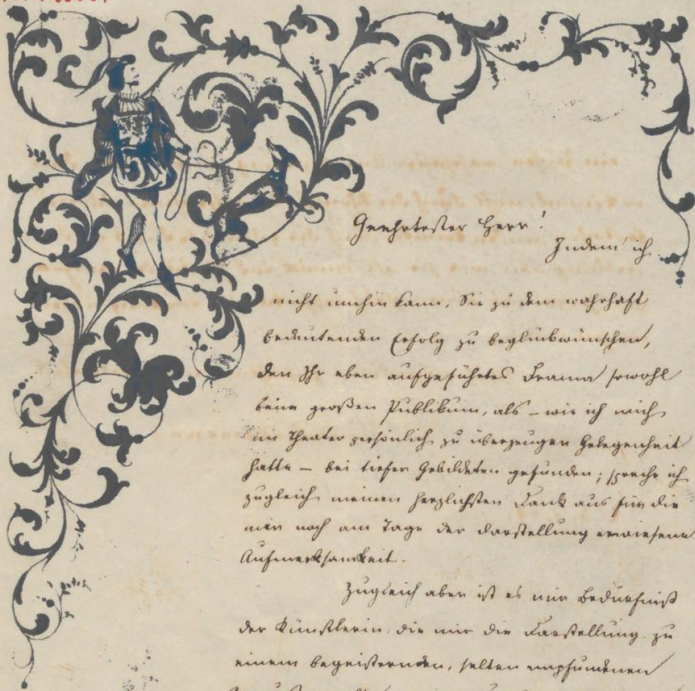 Geehrtester Herr!
Indem ich
nicht umhin kann, Sie zu dem wahrhaft
bedeutenden Erfolg zu beglückwünschen,
den Ihr eben aufgeführtes Drama sowohl
beim großen Publikum, als – wie ich mich
im Theater persönlich zu überzeugen Gelegenheit
hatte – bei tiefer Gebildeten gefunden; spreche ich
zugleich meinen herzlichsten Dank aus für die
mir noch am Tage der Darstellung erwiesene
Aufmerksamkeit.
Zugleich aber ist es mir Bedürfniß
der Künstlerin, die mir die Darstellung zu
einem begeisternden, selten empfundenen